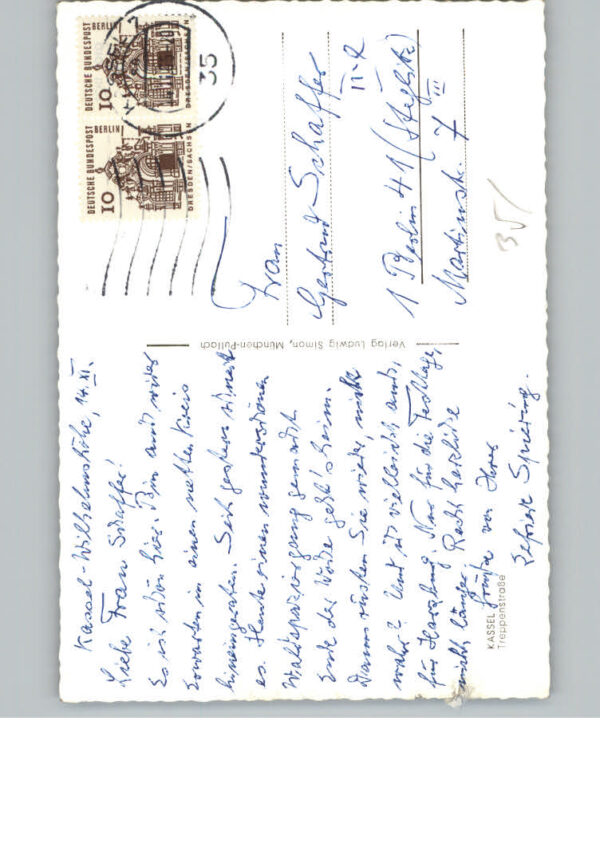 Kassel-Wilhelmshöhe, 14. XI.
Liebe Frau Schaffer!
Es ist schön hier. Bin auch wider
Erwarten in einen netten Kreis
hineingeraten. Seit gestern schneit
es. Heute einen wunderschönen
Waldspaziergang gemacht.
Ende der Woche geht's heim.
Dann rüsten Sie wieder, nicht
wahr? Und ich vielleicht auch,
für Harzburg. Nur für die Festtage,
nicht länger. Recht herzliche
Grüße von Ihrer
Spiering.
KASSEL
Treppenstraße
Verlag Ludwig Simon, München-Pullach
DEUTSCHE BUNDESPOST
BERLIN
10
DRESDEN/SACHSEN
DEUTSCHE BUNDESPOST
BERLIN
10
DRESDEN/SACHSEN
35
Frau
Gertrud Schaffer
1 Berlin 41 (Steglitz)
Martinstr. 7 III
35/